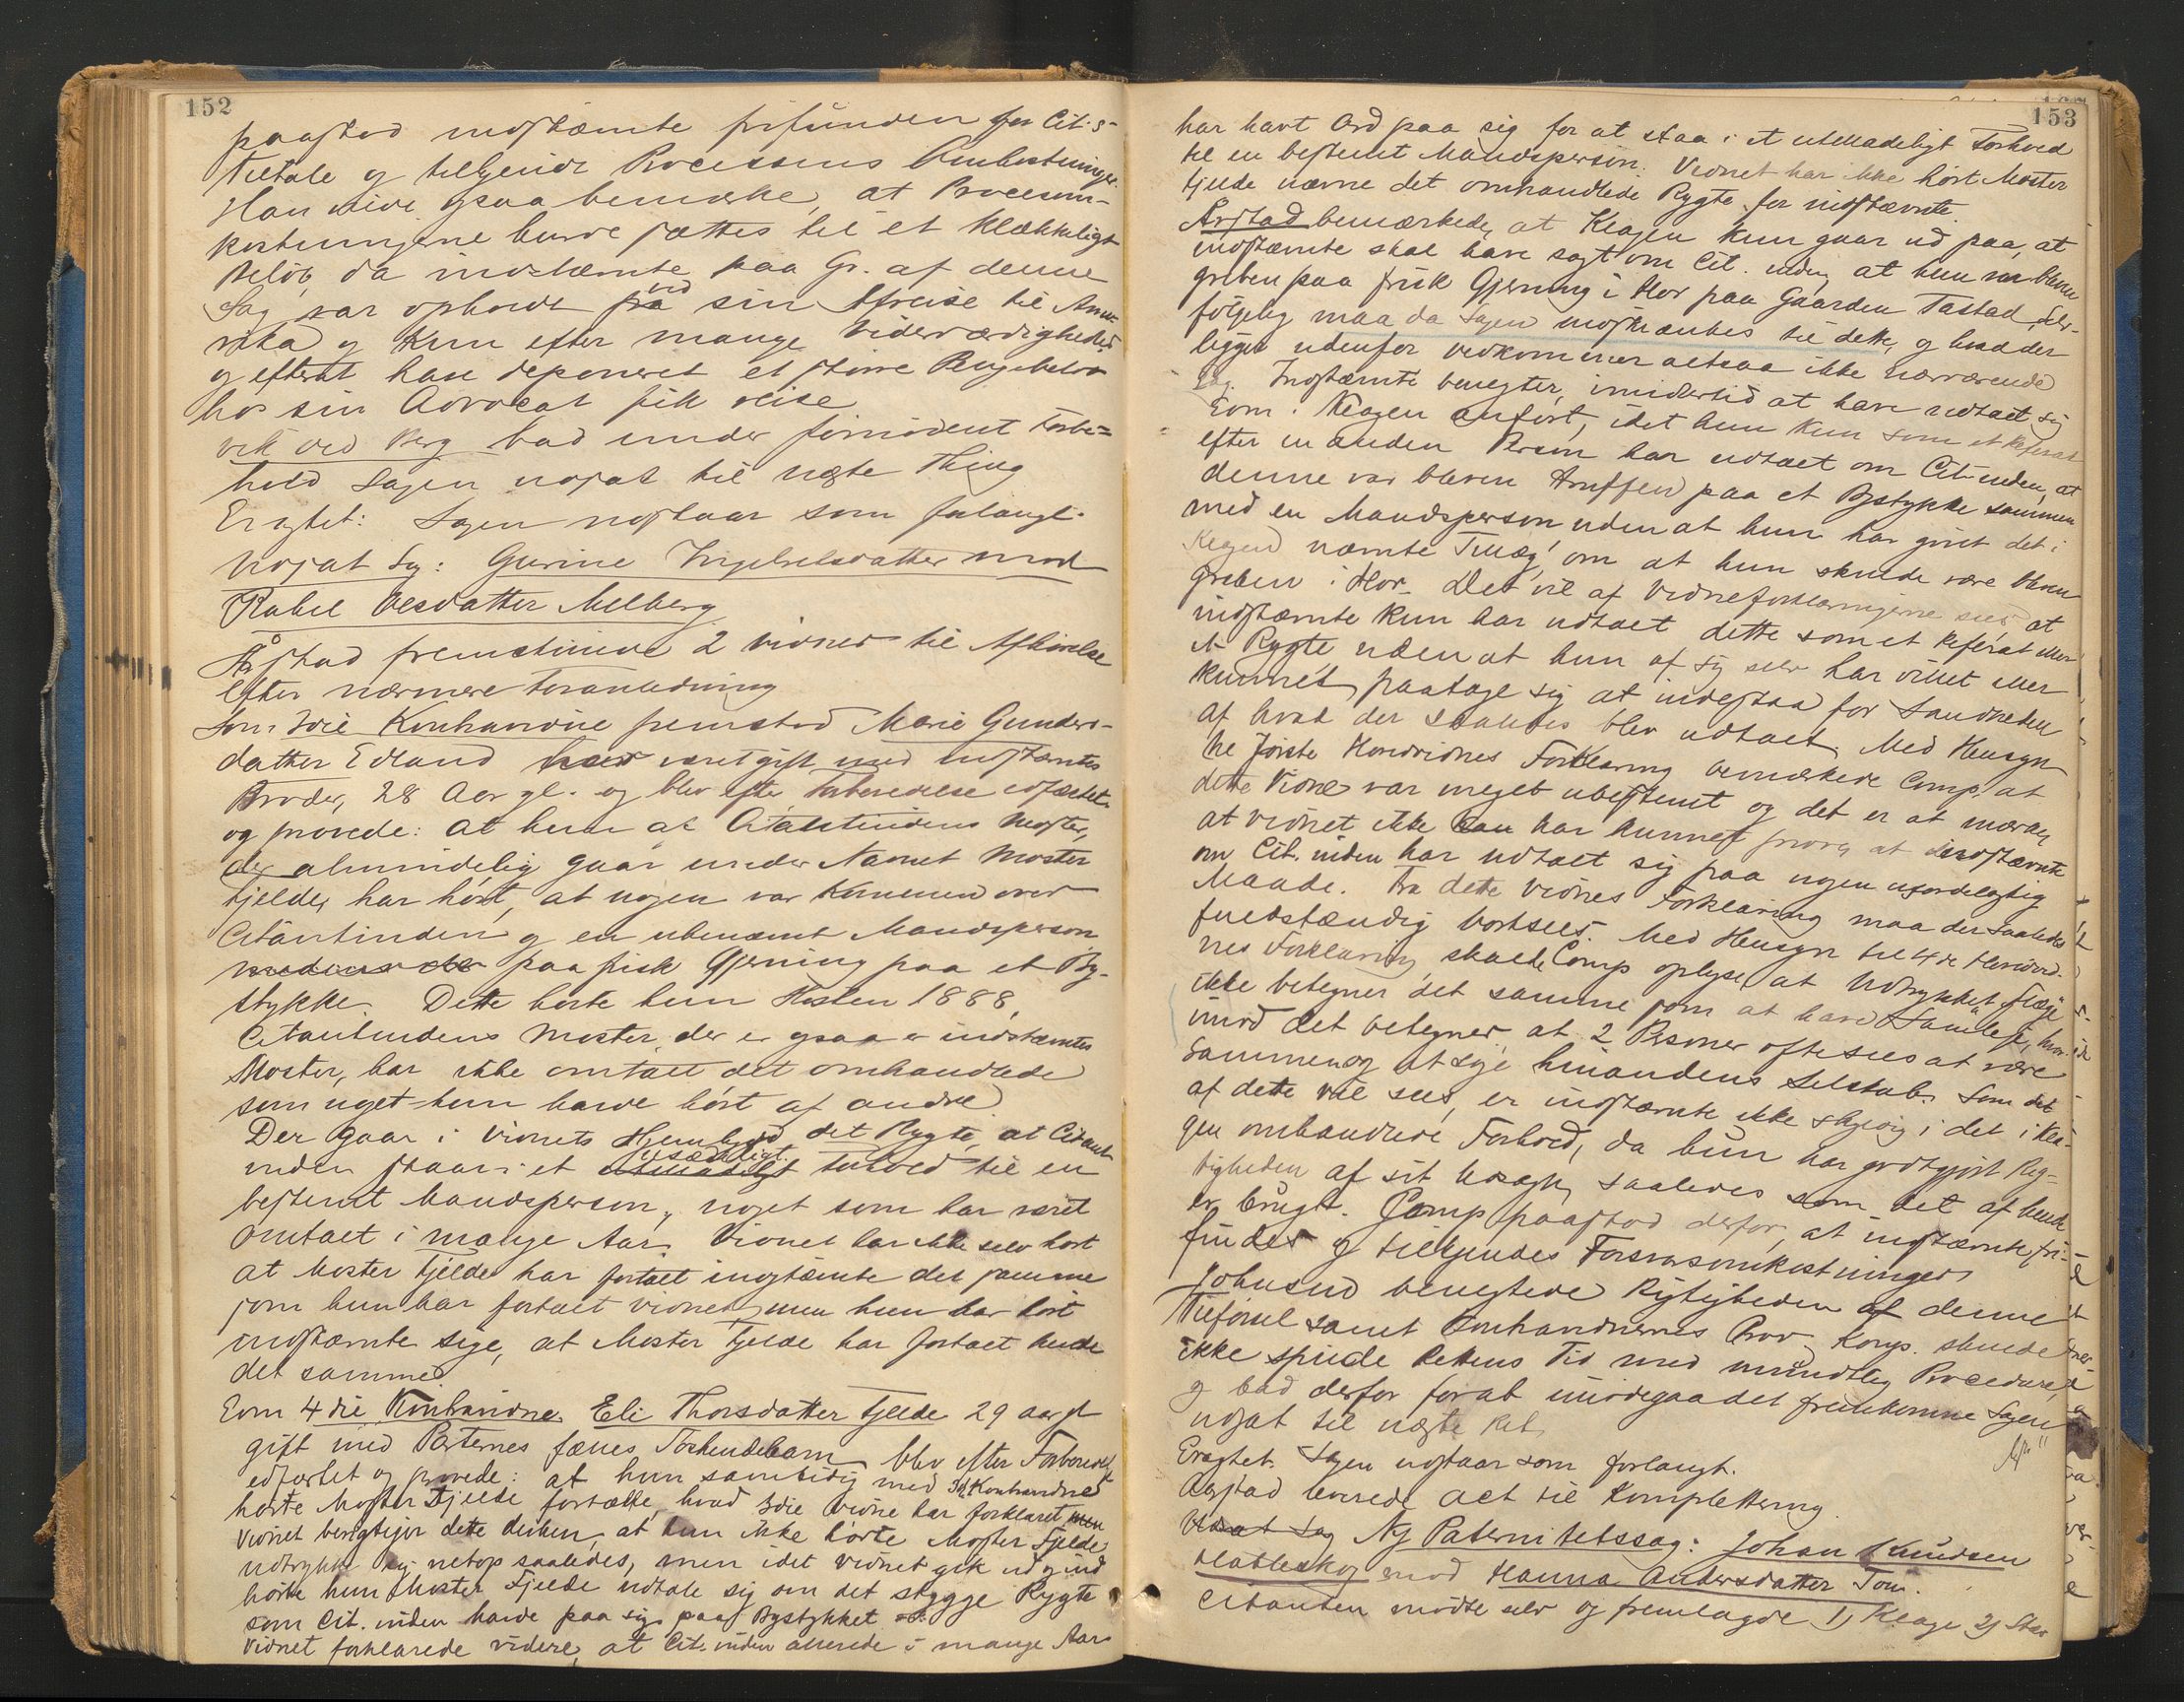 152
paastod indstæmte frifunden for Cit.s
Tiltale og tilkjendt Processens Omkostninger.
Han vilde ogsaa bemærke, at Procesom-
kostningerne burde sættes til et klækkeligt
Beløb, da indstæmte paa Gr. af denne
Sag var opholdt ved sin Afreise til Ame-
rika og kun efter mange Viderværdigheder
og efterat have deponeret et større Pengebeløb
hos sin Advocat fik reise
vik ved Berg bad under fornødent Forbe-
hold Sagen udsat til næste Thing
Eragtet: Sagen udstaar som forlangt.
Udsat Sag: Gurine Ingebretsdatter mod
Rakel Olesdatter Melberg
Årstad fremstillede 2 Vidner til Afhørelse
efter nærmere Foranledning
Som 3die Kontravidne fremstod Marie Gunders-
datter Edland har været gift med indstæmtes
Broder, 28 Aar gl. og blev efter Forberedelse edfæstet
og provede: at hun af Citantindens Moster,
der almindelig gaar under Navnet Moster
Fjelde, har hørt, at nogen var kommen over
Citantinden og en ubenævnt Mandsperson
paa frisk Gjerning paa et By-
stykke. Dette hørte hun Høsten 1888,
Citantindens Moster, der er ogsaa er indstæmtes
Moster, har ikke omtalt det omhandlede
som noget hun havde hørt af andre.
Der gaar i Vidnets Hjembygd det Rygte at Citant-
inden staar i et usædeligt Forhold til en
bestemt Mandsperson, noget som har været
omtalt i mange Aar. Vidnet har ikke selv hørt
at Moster Fjelde har fortalt indstæmte det samme
som hun har fortalt Vidnet, men hun har hørt
indstæmte sige, at Moster Fjelde har fortalt hende
det samme
Som 4die Kontravidne Eli Thorsdatter Fjelde 29 aar gl
gift med Parternes fælles Søskendebarn blev efter Forberedelse
edfæstet og provede: at hun samtidig med 3die Kontravidne
hørte Moster Fjelde fortælle, hvad 3die Vidne har forklaret men
Vidnet berigtiger dette derhen, at hun ikke hørte Moster Fjelde
udtrykke sig netop saaledes, men idet Vidnet gik ud og ind
hørte hun Moster Fjelde udtale sig om det stygge Rygte
som Cit.inden havde paa sig paa Bystykket
Vidnet forklarede videre, at Cit.inden allerede i mange Aar
153
har havt Ord paa sig for at staa i et utilladeligt Forhold
til en bestemt Mandsperson. Vidnet har ikke hørt Moster
Fjelde nævne det omhandlede Rygte for indstæmte.
Årstad bemærkede, at Klagen kun gaar ud paa, at
indstæmte skal have sagt om Cit.inden, at hun var bleven
greben paa frisk Gjerning i Hor paa Gaarden Tastad, Sel-
følgelig maa da Sagen indskrænkes til dette, og hvad der
ligger udenfor vedkommer altsaa ikke nærværende
Sag. Indstæmte benegter imidlertid at have udtalt sig
som i Klagen anført, idet hun kun som et Referat
efter en anden Person har udtalt om Cit.inden, at
denne var bleven truffen paa et Bystykke sammen
med en Mandsperson uden at hun har givet det i
Klagen nævnte Tillæg om at hun skulde være bleven
greben i Hor. Det vil af Vidneforklaringerne sees, at
indstæmte kun har udtalt dette som et Referat eller
et Rygte uden at hun af sig selv har villet eller
kunnet paatage sig at indestaa for Sandheden
af hvad der saaledes blev udtalt. Med Hensyn
til første Hovedvidnes Forklaring bemærkede Comp. at
dette Vidne var meget ubestemt og det er at mærke,
at Vidnet ikke har kunnet prove at indstæmte
om Cit.inden har udtalt sig paa nogen ufordelagtig
Maade. Fra dette Vidnes Forklaring maa der saaledes
fuldstændig bortsees. Med Hensyn til 4de Hovedvid-
nes Forklaring skulde Comp oplyse, at Udtrykket
ikke betegner det samme som at have Samleie, hvor-
imod det betegner at 2 Personer ofte sees at være
sammen og at søge hinandens Selskab. Som det
af dette vil sees, er indstæmte ikke skyldig i det i Kla-
gen omhandlede Forhold, da hun har godtgjort Rig-
tigheden af sit Udsagn, saaledes som det af hende
er brugt. Comp paastod derfor, at indstæmte fri-
findes og tilkjendes Forsvarsomkostninger
Johnsen benegtede Rigtigheden af denne
Tilførsel samt Contravidnernes Prov. Komp. skulde
ikke spilde Rettens Tid med mundtlig Procedure,
og bad derfor for at imødegaa det fremkomne Sagen
udsat til næste Ret
Eragtet: Sagen udstaar som forlangt.
Aarstad leverede Act til Komplettering
Udsat Sag Ny Paternitetssag: Johan Knudsen
mod Hanna Andersdatter Tou.
Citanten mødte selv og fremlagde 1) Klage 2) Stev